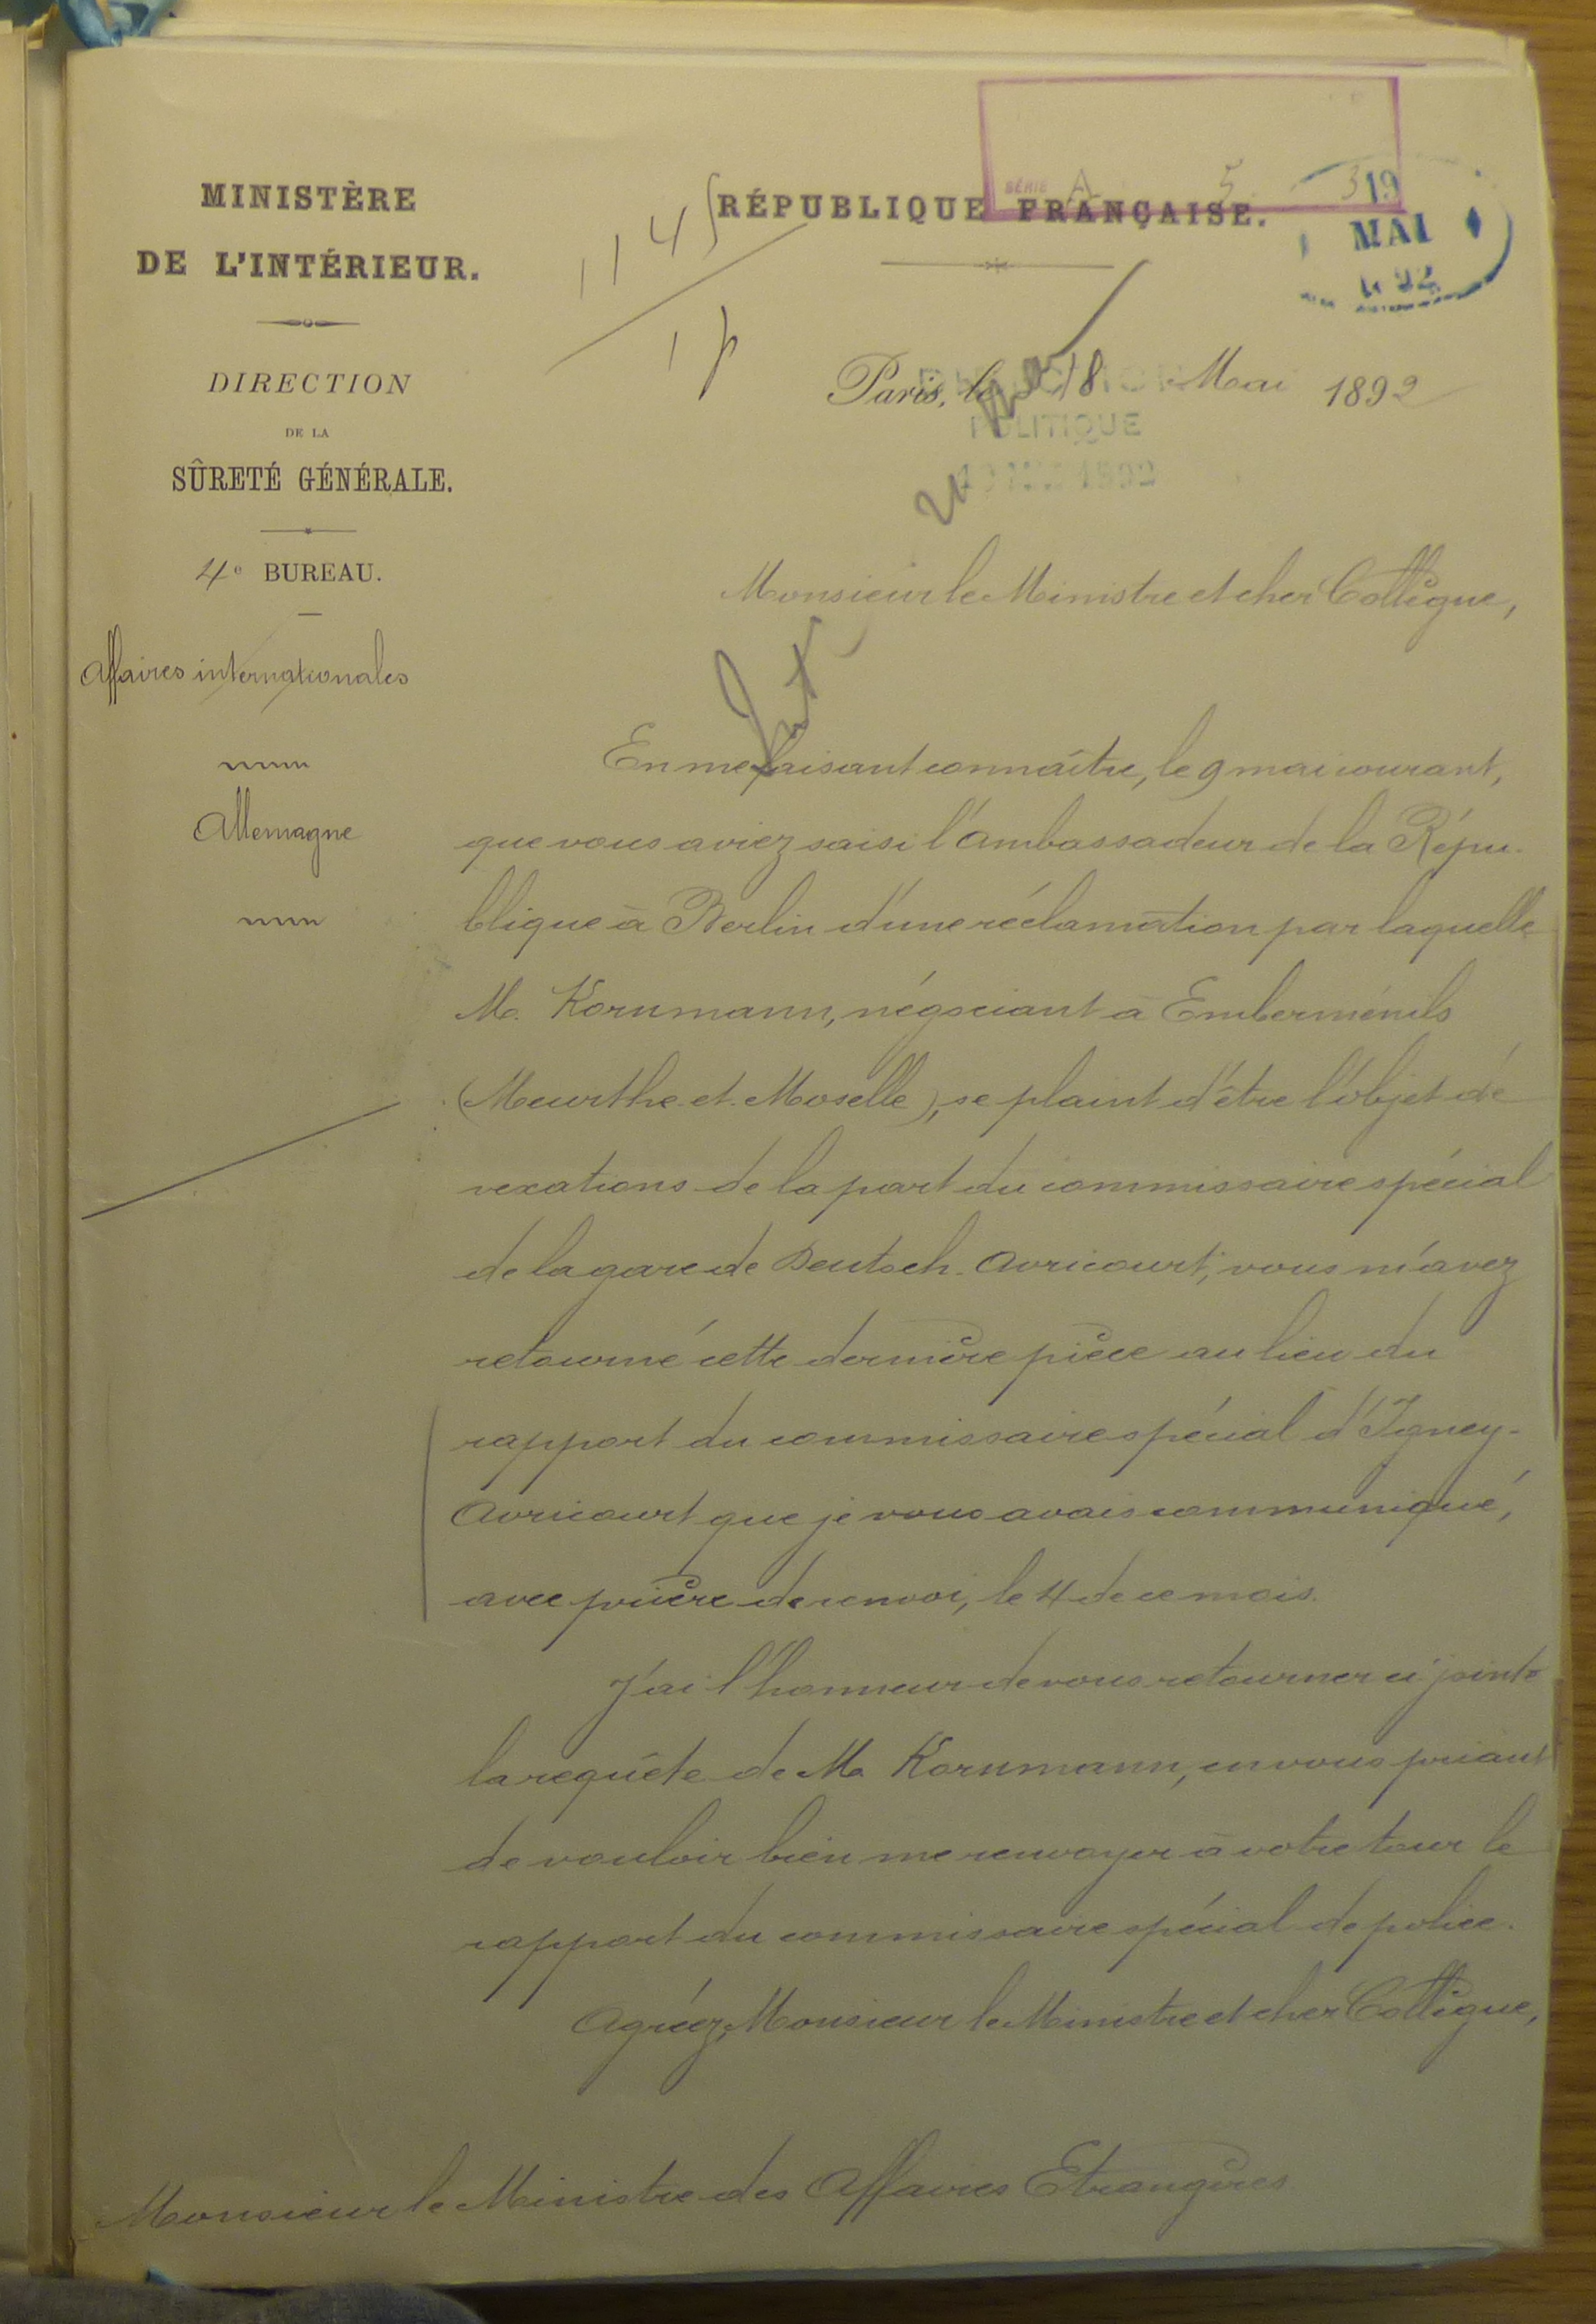 MINISTÈRE
DE L'INTÉRIEUR.
DIRECTION
DE LA
SÛRETÉ GÉNÉRALE.
4e BUREAU.
Affaires internationales
Allemagne
SÉRIE A 5 3
RÉPUBLIQUE FRANÇAISE.
19
MAI
1892
Paris, le 18 Mai 1892
DIRECTION
POLITIQUE
1892
Monsieur le Ministre et cher Collègue,
En me faisant connaître, le 9 mai courant,
que vous aviez saisi l'Ambassadeur de la Répu-
blique à Berlin d'une réclamation par laquelle
M. Kornmann, négociant à Emberménils
(Meurthe-et-Moselle), se plaint d'être l'objet de
vexations de la part du commissaire spécial
de la gare de Deutsch-Avricourt, vous m'avez
retourné cette dernière pièce au lieu du
rapport du commissaire spécial d'Igney-
Avricourt que je vous avais communiqué,
avec prière de renvoi, le 4 de ce mois.
J'ai l'honneur de vous retourner ci-jointe
la requête de M. Kornmann, en vous priant
de vouloir bien me renvoyer à votre tour le
rapport du commissaire spécial de police.
Agréez, Monsieur le Ministre et cher Collègue,
Monsieur le Ministre des Affaires Etrangères